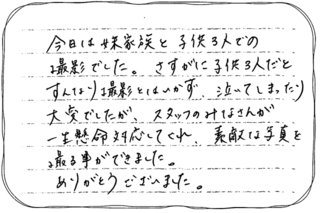 今日は妹家族と子供3人での
撮影でした。さすがに子供3人だと
すんなり撮影とはいかず、泣いてしまったり
大変でしたが、スタッフのみなさんが
一生懸命対応してくれ、素敵な写真を
撮る事ができました。
ありがとうございました。